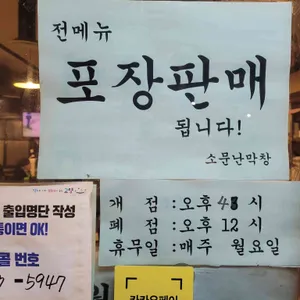 전메뉴
포장판매
됩니다!
소문난막창
개 점 :오후 시
폐 점 :오후 12 시
휴무일 :매주 월요일
출입명단 작성
통이면 OK!
콜 번호
-5947
카카오페이